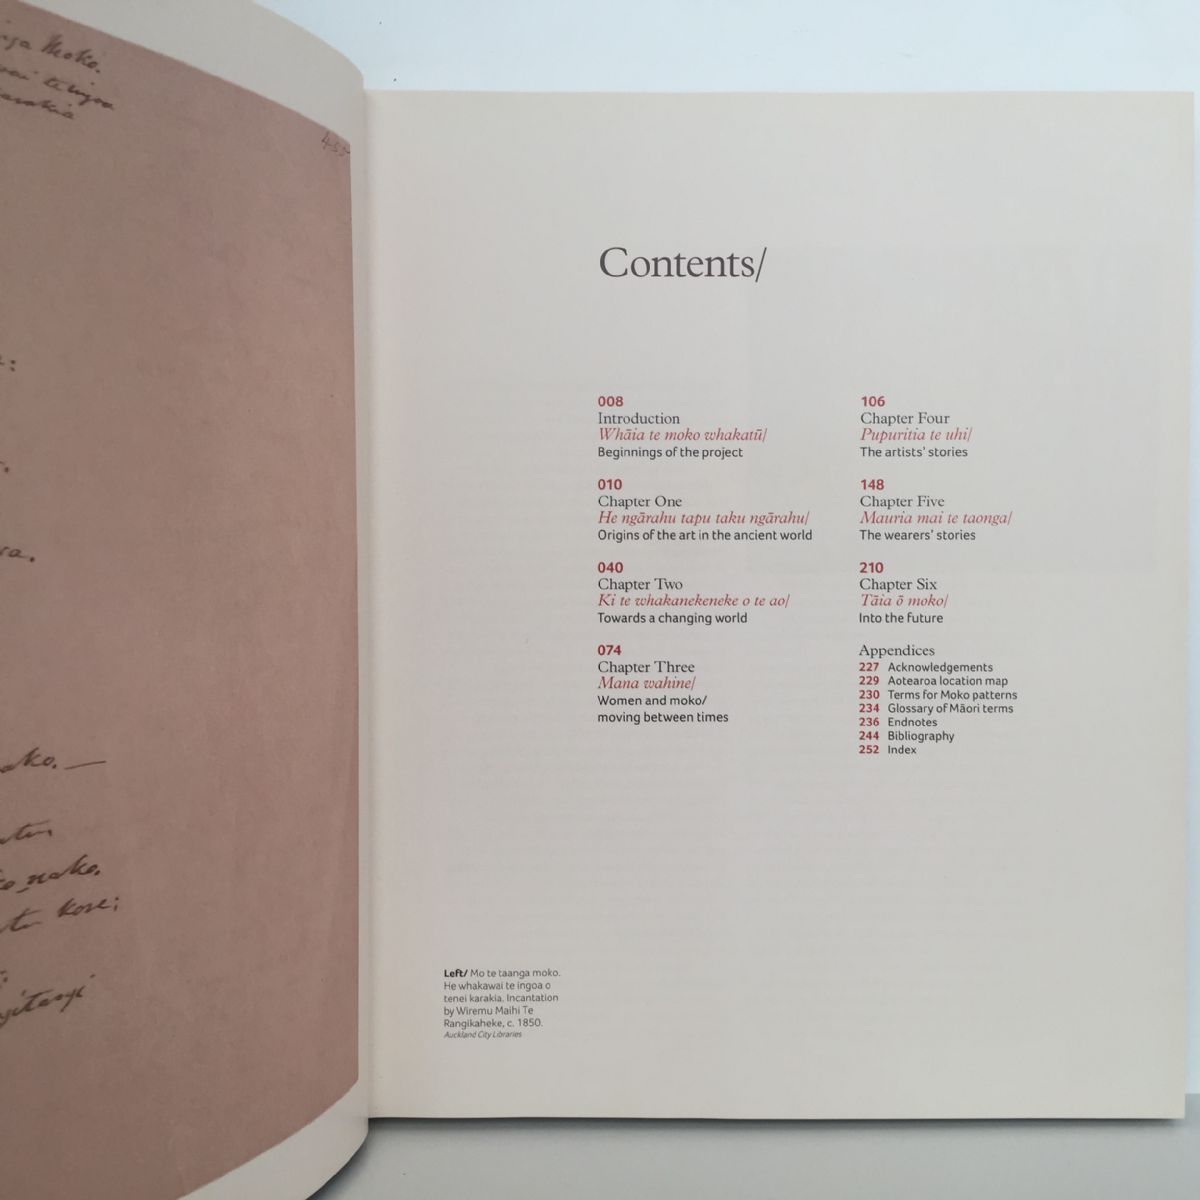 nga Moko.
te ingoa
karakia
455
ako. —
nako.
kore;
Contents/
008
Introduction
Whāia te moko whakatū/
Beginnings of the project
010
Chapter One
He ngārahu tapu taku ngārahu/
Origins of the art in the ancient world
040
Chapter Two
Ki te whakanekeneke o te ao/
Towards a changing world
074
Chapter Three
Mana wahine/
Women and moko/
moving between times
106
Chapter Four
Pupuritia te uhi/
The artists' stories
148
Chapter Five
Mauria mai te taonga/
The wearers' stories
210
Chapter Six
Tāia ō moko/
Into the future
Appendices
227 Acknowledgements
229 Aotearoa location map
230 Terms for Moko patterns
234 Glossary of Māori terms
236 Endnotes
244 Bibliography
252 Index
Left/ Mo te taanga moko.
He whakawai te ingoa o
tenei karakia. Incantation
by Wiremu Maihi Te
Rangikaheke, c. 1850.
Auckland City Libraries